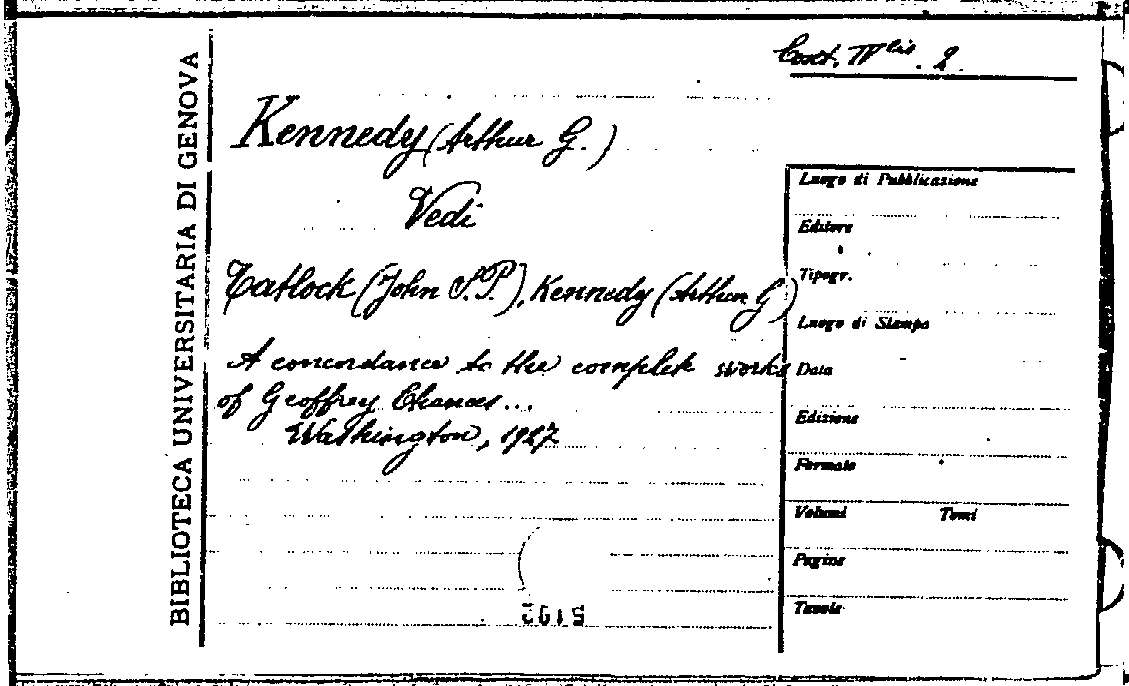 Coct. IV bis. 2.
BIBLIOTECA UNIVERSITARIA DI GENOVA
Kennedy (Arthur G.)
Vedi
Tatlock (John S. P.), Kennedy (Arthur G)
A concordance to the complete works
of Geoffrey Chaucer...
Washington, 1927
Luogo di Pubblicazione
Editore
Tipogr.
Luogo di Stampa
Data
Edizione
Formato
Volumi Tomi
Pagine
Tavole